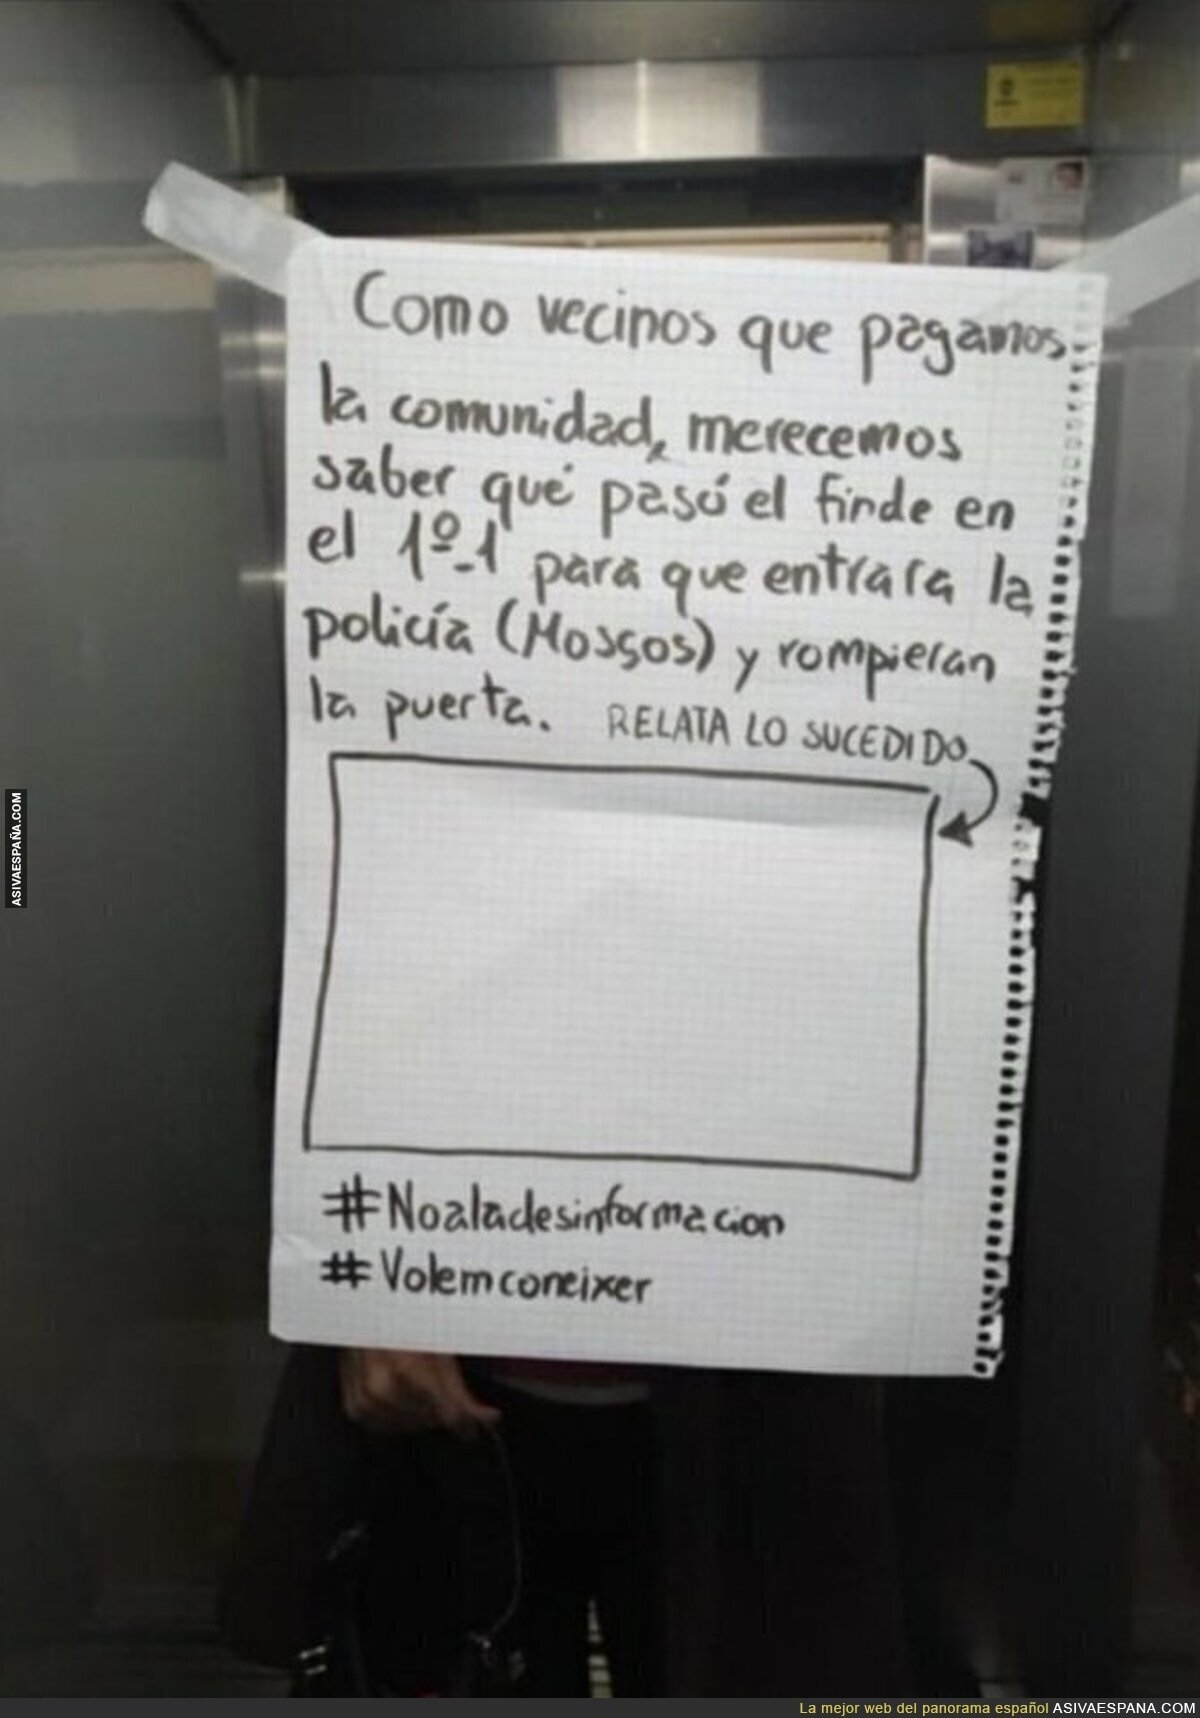 Como vecinos que pagamos
la comunidad, merecemos
saber qué pasó el finde en
el 1º-1 para que entrara la
policía (Mossos) y rompieran
la puerta. RELATA LO SUCEDIDO
#Noaladesinformacion
#Volemconeixer
ASIVAESPAÑA.COM
La mejor web del panorama español ASIVAESPANA.COM